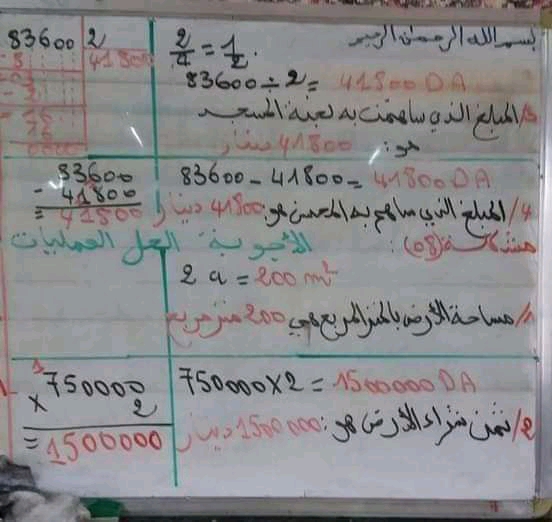 بسم الله الرحمن الرحيم
2/4 = 1/2.
83600 ÷ 2 = 41800 DA
83600 2
41800
3/ المبلغ الذي ساهمت به لجنة المسجد
هو: 41800 دينار
83600 - 41800 = 41800 DA
83600
- 41800
= 41800
4/ المبلغ الذي ساهم به المحسن هو 41800 دينار
مشكلة (08): الأجوبة الحل العمليات
2 a = 200 m²
1/ مساحة الأرض بالمتر المربع هي 200 متر مربع
750000 X 2 = 1500000 DA
1
750000
x 2
= 1500000
2/ ثمن شراء الأرض هو: 1500000 دينار